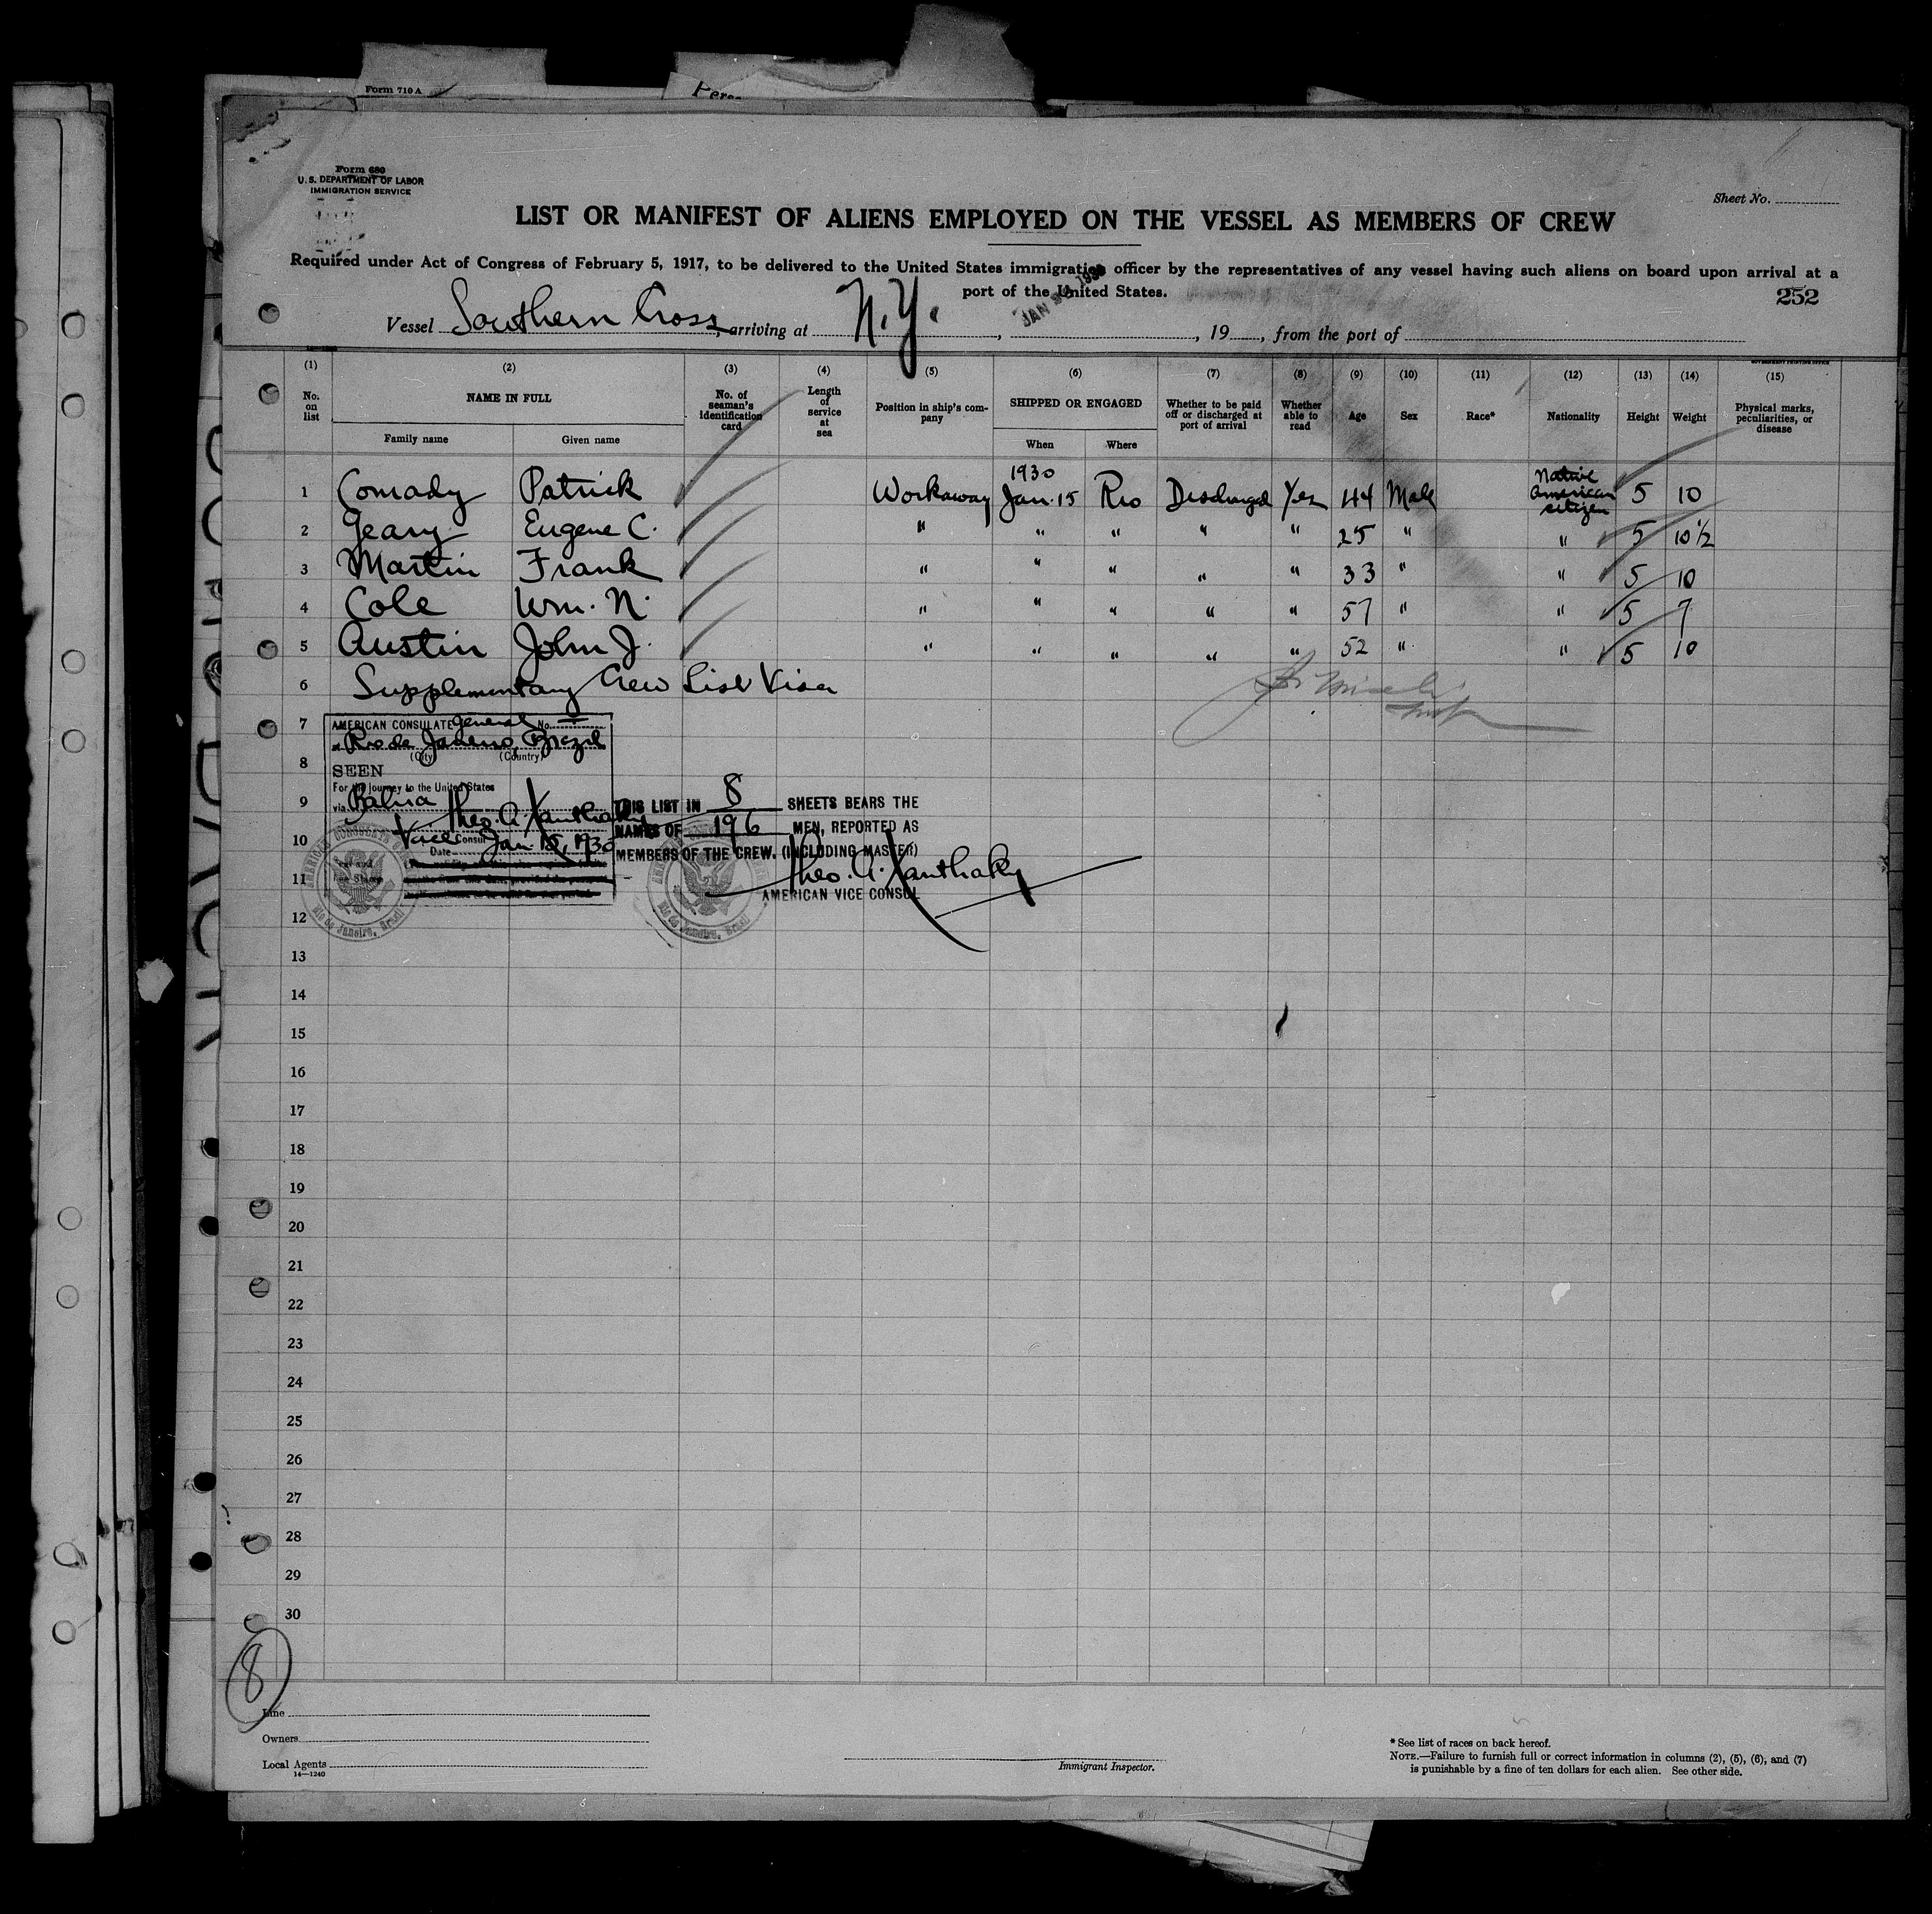 Form 710 A
Form 680
U. S. DEPARTMENT OF LABOR
IMMIGRATION SERVICE
Sheet No.
LIST OR MANIFEST OF ALIENS EMPLOYED ON THE VESSEL AS MEMBERS OF CREW
Required under Act of Congress of February 5, 1917, to be delivered to the United States immigration officer by the representatives of any vessel having such aliens on board upon arrival at a
port of the United States.
252
Vessel Southern Cross, arriving at N.Y. , JAN , 19 , from the port of
GOVERNMENT PRINTING OFFICE
(1) (2) (3) (4) (5) (6) (7) (8) (9) (10) (11) (12) (13) (14) (15)
No. on list NAME IN FULL No. of seaman's identification card Length of service at sea Position in ship's company SHIPPED OR ENGAGED Whether to be paid off or discharged at port of arrival Whether able to read Age Sex Race* Nationality Height Weight Physical marks, peculiarities, or disease
Family name Given name When Where
1 Conrady Patrick Workaway 1930 Jan. 15 Rio Discharged Yes 44 Male Native American citizen 5 10
2 Geary Eugene C. " " " " " 25 " " 5 10 1/2
3 Martin Frank " " " " " 33 " " 5 10
4 Cole Wm. N. " " " " " 57 " " 5 7
5 Austin John J. " " " " " 52 " " 5 10
6 Supplementary Crew List Visa
7 AMERICAN CONSULATE General No.
at Rio de Janeiro, Brazil
8 (City) (Country)
SEEN
For the journey to the United States
9 via Bahia
Theo. A. Xanthaky
10 Vice Consul
Date Jan. 15, 1930
11
AMERICAN CONSULATE
Rio de Janeiro, Brazil
THIS LIST IN 8 SHEETS BEARS THE
NAMES OF 196 MEN, REPORTED AS
MEMBERS OF THE CREW. (INCLUDING MASTER)
Theo. A. Xanthaky
AMERICAN VICE CONSUL
Rio de Janeiro, Brazil
12
13
14
15
16
17
18
19
20
21
22
23
24
25
26
27
28
29
30
8
Line
Owners
Local Agents
14—1240
Immigrant Inspector.
* See list of races on back hereof.
NOTE.—Failure to furnish full or correct information in columns (2), (5), (6), and (7)
is punishable by a fine of ten dollars for each alien. See other side.